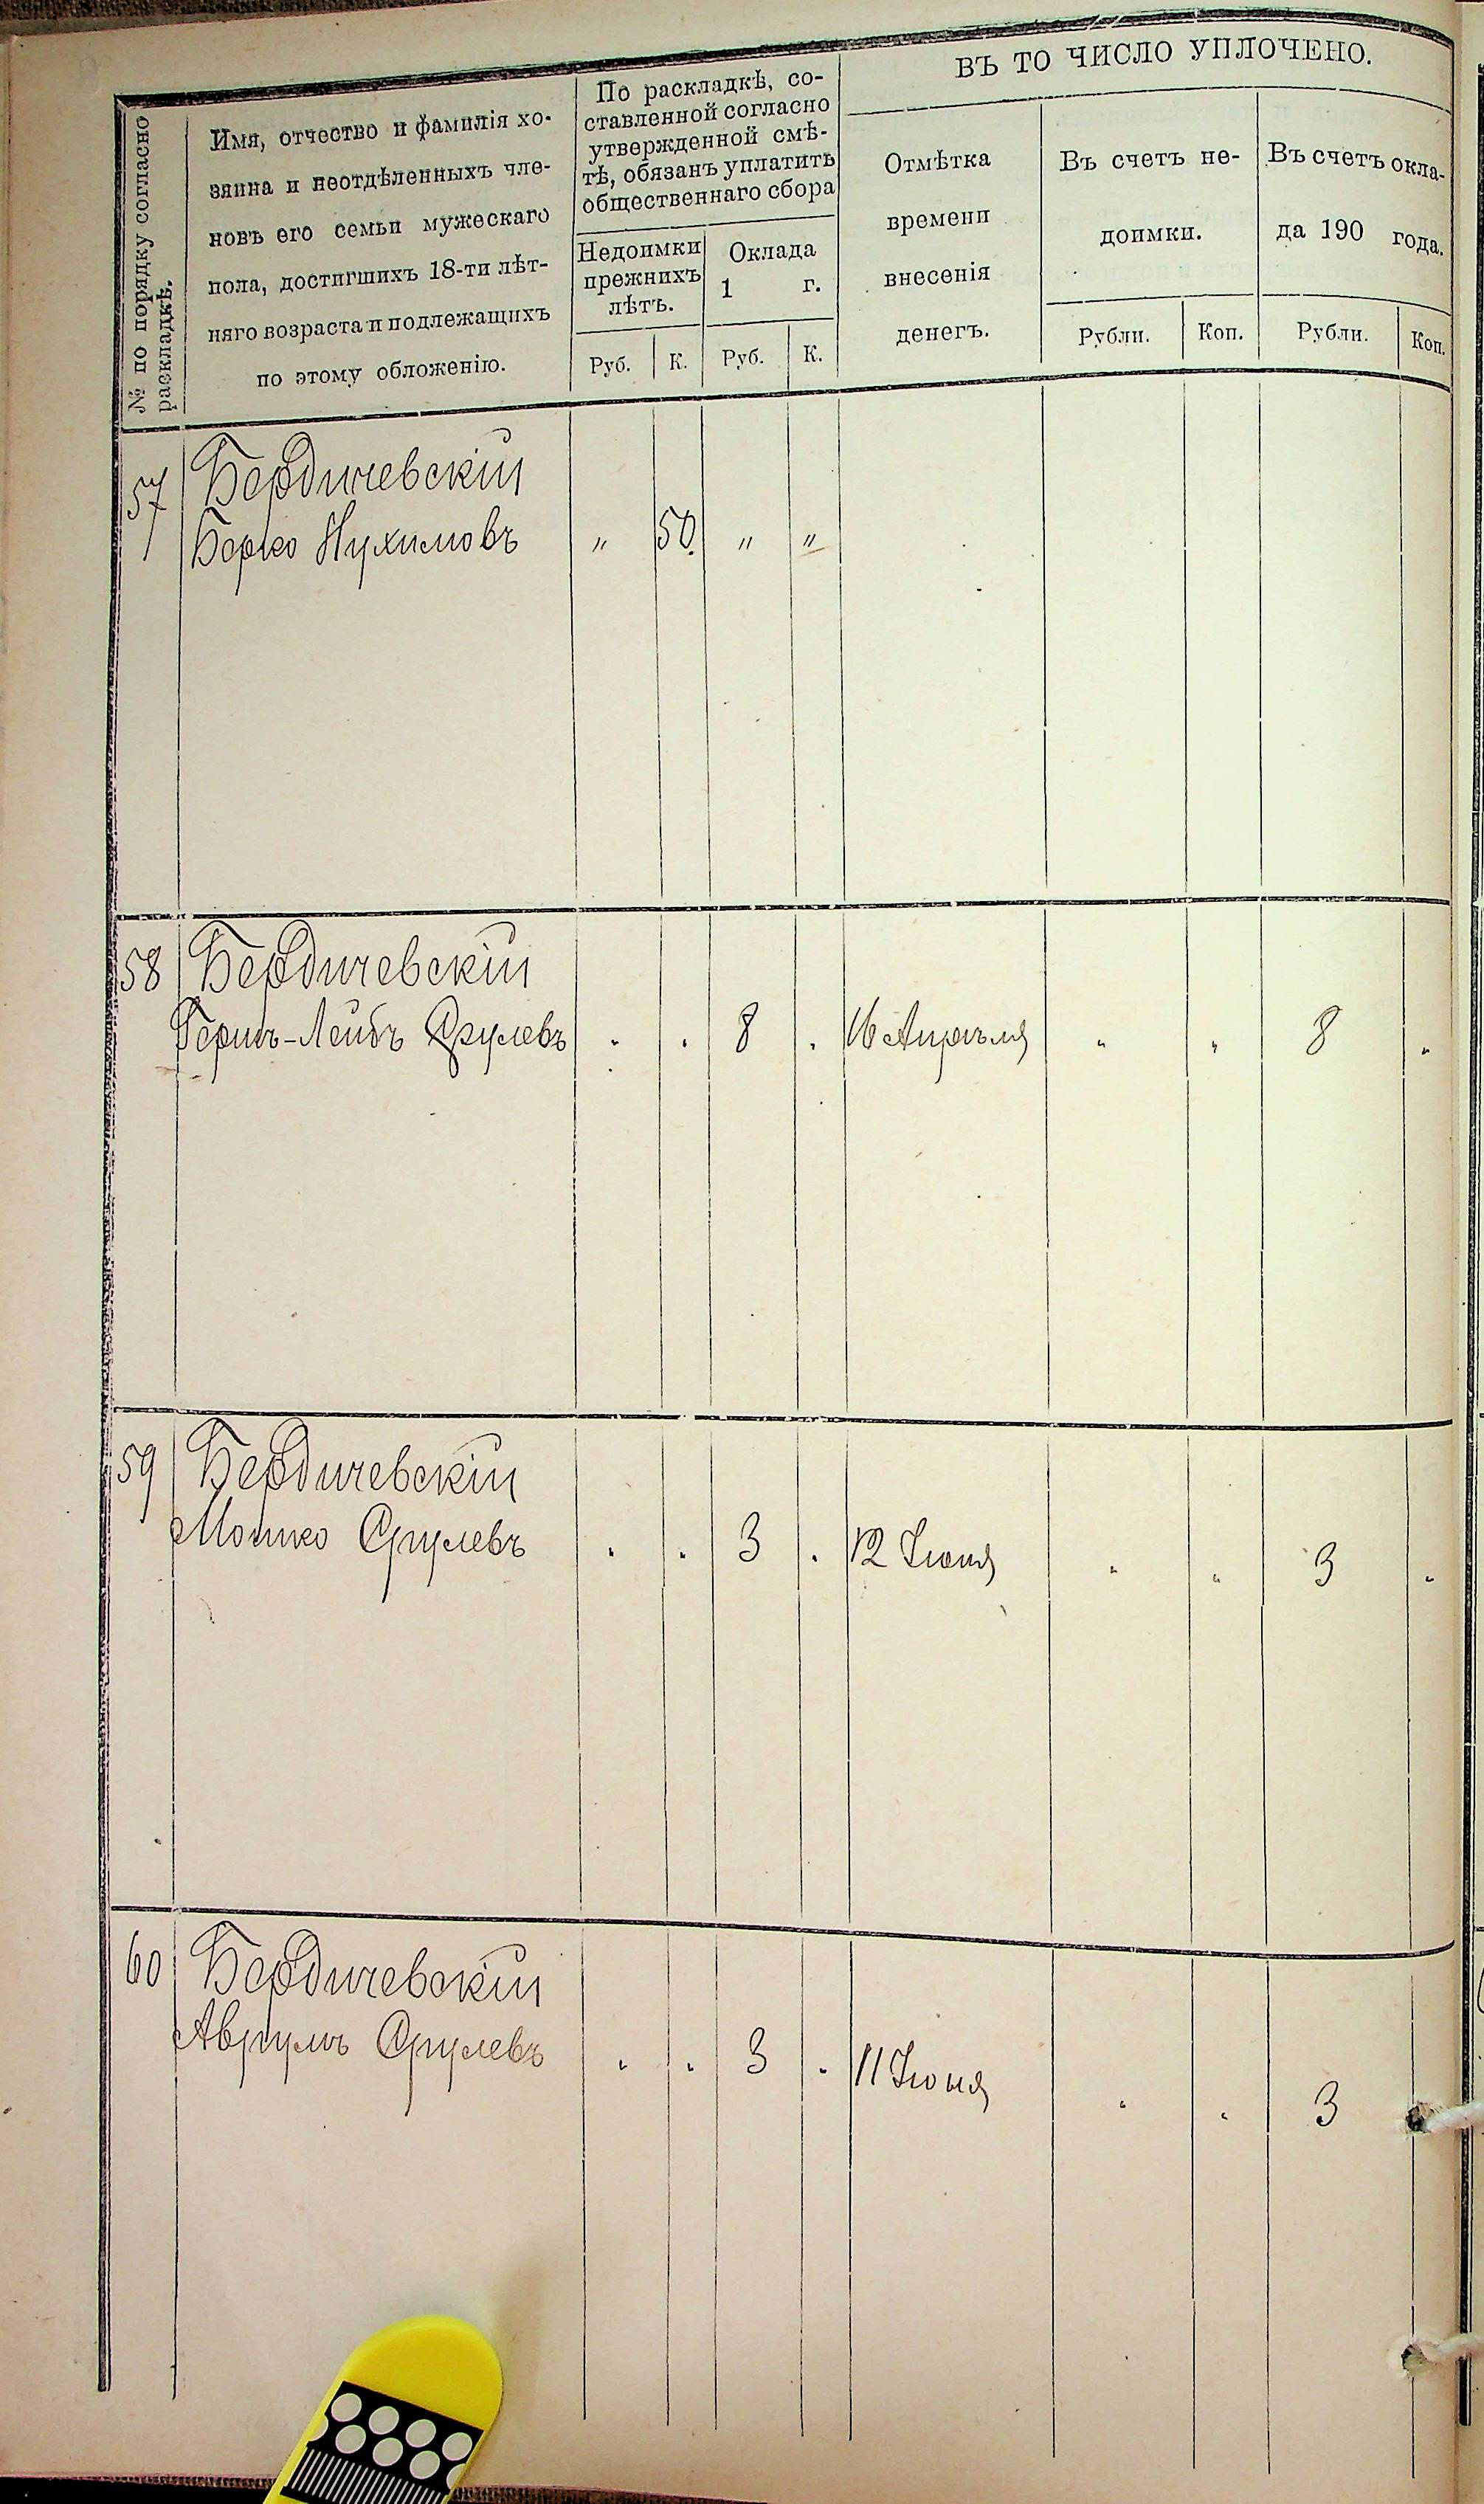 ВЪ ТО ЧИСЛО УПЛОЧЕНО.
№ по порядку согласно
раскладкѣ.
Имя, отчество и фамилія хо-
зяина и неотдѣленныхъ чле-
новъ его семьи мужескаго
пола, достигшихъ 18-ти лѣт-
няго возраста и подлежащихъ
по этому обложенію.
По раскладкѣ, со-
ставленной согласно
утвержденной смѣ-
тѣ, обязанъ уплатить
общественнаго сбора
Недоимки
прежнихъ
лѣтъ.
Оклада
1 г.
Руб. К. Руб. К.
Отмѣтка
времени
внесенія
денегъ.
Въ счетъ не-
доимки.
Рубли. Коп.
Въ счетъ окла-
да 190 года.
Рубли. Коп.
57 Бердичевскій
Берко Нухимовъ " 50. " "
58 Бердичевскій
Гершъ-Лейбъ Срулевъ " " 8 " 16 Апрѣля " " 8 "
59 Бердичевскій
Мошко Срулевъ " " 3 " 12 Іюня " " 3 "
60 Бердичевскій
Аврумъ Срулевъ " " 3 " 11 Іюня " " 3